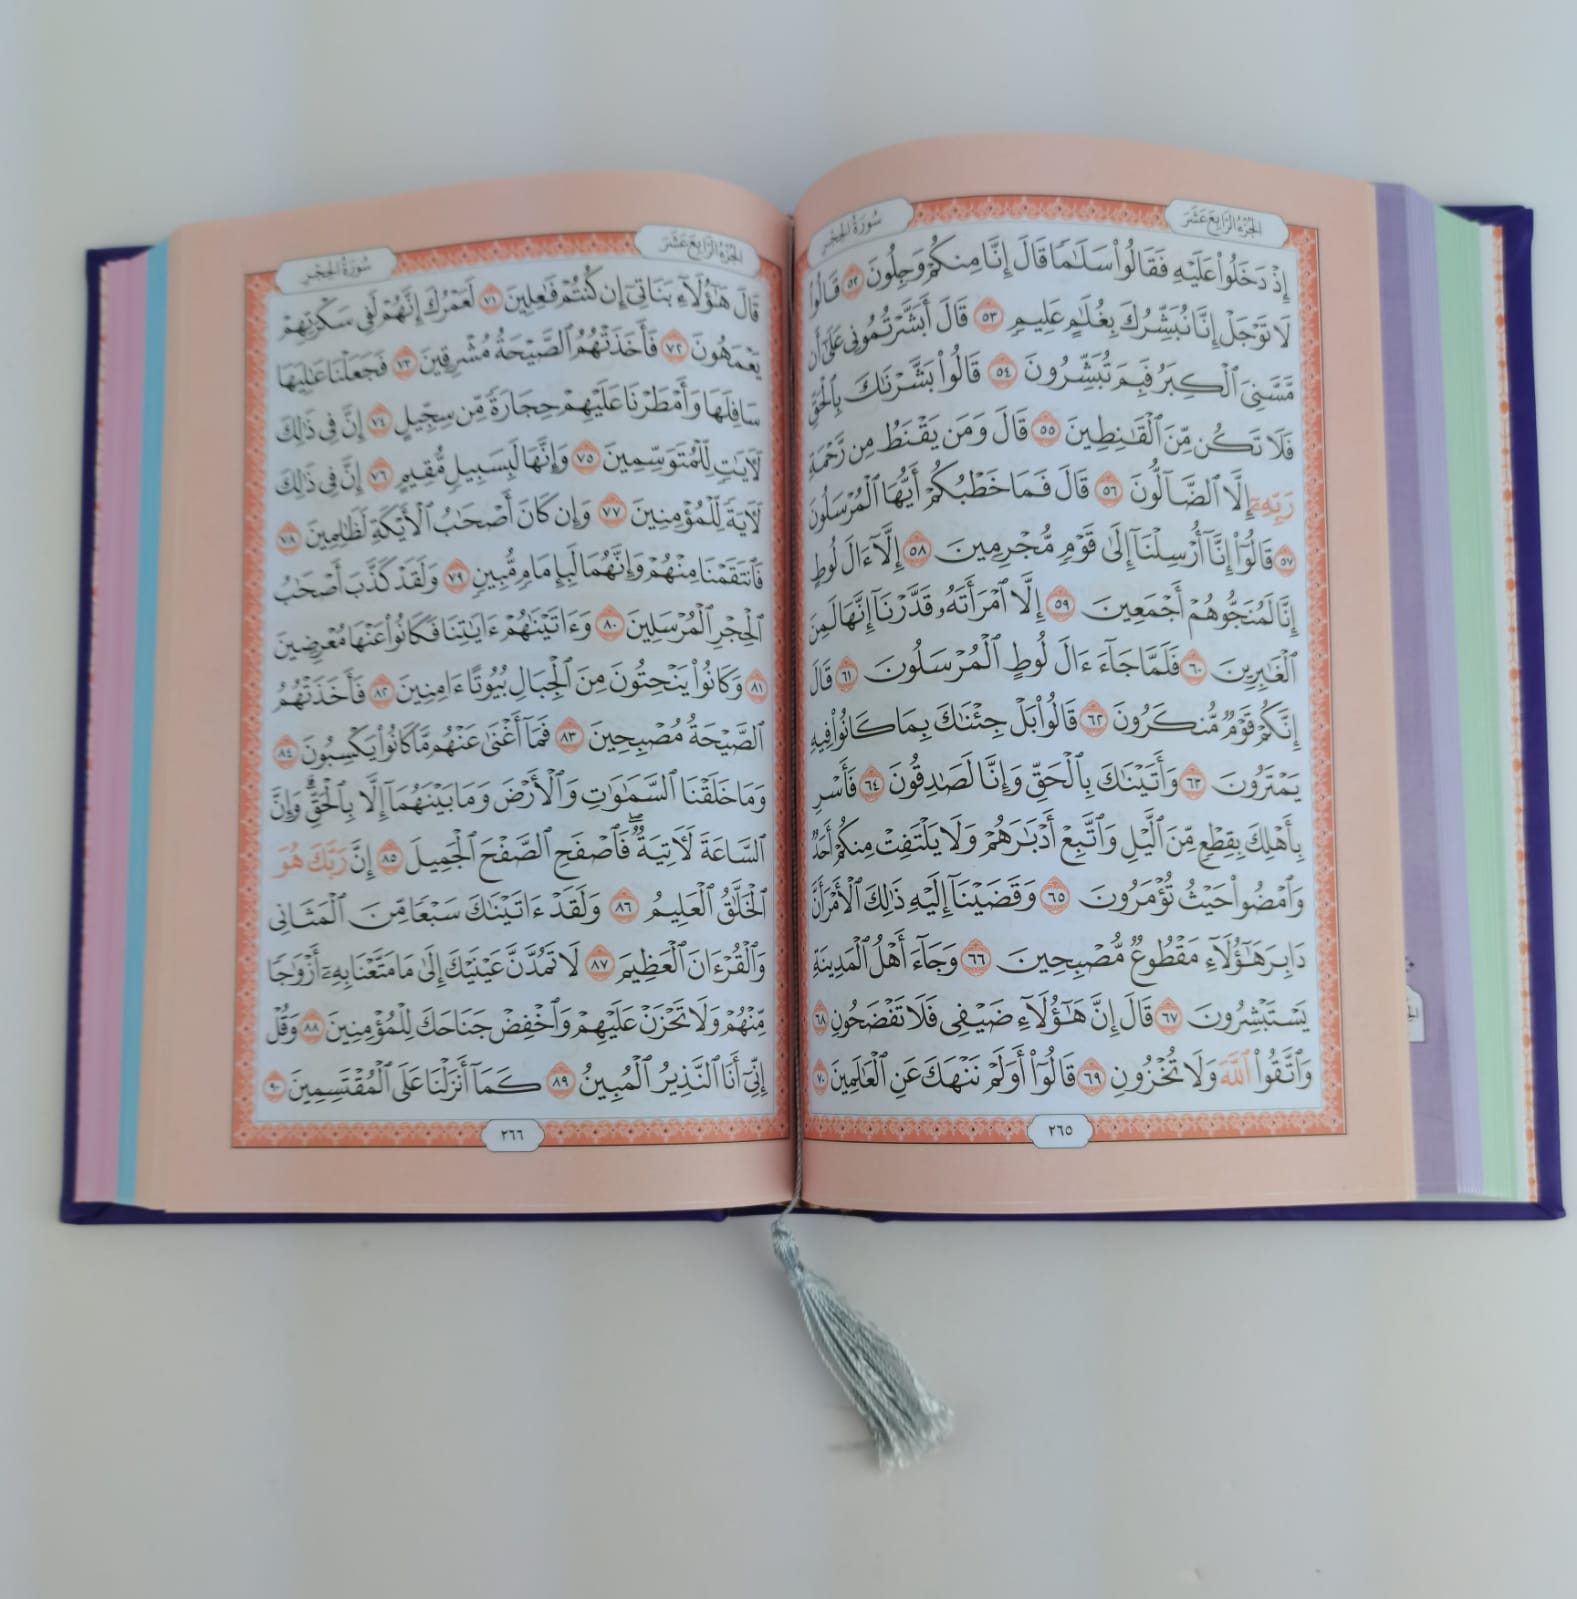 الجزء الرابع عشر
سورة الحجر
إِذْ دَخَلُوا۟ عَلَيْهِ فَقَالُوا۟ سَلَـٰمًا قَالَ إِنَّا مِنكُمْ وَجِلُونَ ٥٢ قَالُوا۟
لَا تَوْجَلْ إِنَّا نُبَشِّرُكَ بِغُلَـٰمٍ عَلِيمٍ ٥٣ قَالَ أَبَشَّرْتُمُونِى عَلَىٰٓ أَن
مَّسَّنِىَ ٱلْكِبَرُ فَبِمَ تُبَشِّرُونَ ٥٤ قَالُوا۟ بَشَّرْنَـٰكَ بِٱلْحَقِّ
فَلَا تَكُن مِّنَ ٱلْقَـٰنِطِينَ ٥٥ قَالَ وَمَن يَقْنَطُ مِن رَّحْمَةِ
رَبِّهِۦٓ إِلَّا ٱلضَّآلُّونَ ٥٦ قَالَ فَمَا خَطْبُكُمْ أَيُّهَا ٱلْمُرْسَلُونَ
٥٧ قَالُوٓا۟ إِنَّآ أُرْسِلْنَآ إِلَىٰ قَوْمٍ مُّجْرِمِينَ ٥٨ إِلَّآ ءَالَ لُوطٍ
إِنَّا لَمُنَجُّوهُمْ أَجْمَعِينَ ٥٩ إِلَّا ٱمْرَأَتَهُۥ قَدَّرْنَآ إِنَّهَا لَمِنَ
ٱلْغَـٰبِرِينَ ٦٠ فَلَمَّا جَآءَ ءَالَ لُوطٍ ٱلْمُرْسَلُونَ ٦١ قَالَ
إِنَّكُمْ قَوْمٌ مُّنكَرُونَ ٦٢ قَالُوا۟ بَلْ جِئْنَـٰكَ بِمَا كَانُوا۟ فِيهِ
يَمْتَرُونَ ٦٣ وَأَتَيْنَـٰكَ بِٱلْحَقِّ وَإِنَّا لَصَـٰدِقُونَ ٦٤ فَأَسْرِ
بِأَهْلِكَ بِقِطْعٍ مِّنَ ٱلَّيْلِ وَٱتَّبِعْ أَدْبَـٰرَهُمْ وَلَا يَلْتَفِتْ مِنكُمْ أَحَدٌ
وَٱمْضُوا۟ حَيْثُ تُؤْمَرُونَ ٦٥ وَقَضَيْنَآ إِلَيْهِ ذَٰلِكَ ٱلْأَمْرَ أَنَّ
دَابِرَ هَـٰٓؤُلَآءِ مَقْطُوعٌ مُّصْبِحِينَ ٦٦ وَجَآءَ أَهْلُ ٱلْمَدِينَةِ
يَسْتَبْشِرُونَ ٦٧ قَالَ إِنَّ هَـٰٓؤُلَآءِ ضَيْفِى فَلَا تَفْضَحُونِ ٦٨
وَٱتَّقُوا۟ ٱللَّهَ وَلَا تُخْزُونِ ٦٩ قَالُوٓا۟ أَوَلَمْ نَنْهَكَ عَنِ ٱلْعَـٰلَمِينَ ٧٠
٢٦٥
الجزء الرابع عشر
سورة الحجر
قَالَ هَـٰٓؤُلَآءِ بَنَاتِىٓ إِن كُنتُمْ فَـٰعِلِينَ ٧١ لَعَمْرُكَ إِنَّهُمْ لَفِى سَكْرَتِهِمْ
يَعْمَهُونَ ٧٢ فَأَخَذَتْهُمُ ٱلصَّيْحَةُ مُشْرِقِينَ ٧٣ فَجَعَلْنَا عَـٰلِيَهَا
سَافِلَهَا وَأَمْطَرْنَا عَلَيْهِمْ حِجَارَةً مِّن سِجِّيلٍ ٧٤ إِنَّ فِى ذَٰلِكَ
لَـَٔايَـٰتٍ لِّلْمُتَوَسِّمِينَ ٧٥ وَإِنَّهَا لَبِسَبِيلٍ مُّقِيمٍ ٧٦ إِنَّ فِى ذَٰلِكَ
لَـَٔايَةً لِّلْمُؤْمِنِينَ ٧٧ وَإِن كَانَ أَصْحَـٰبُ ٱلْأَيْكَةِ لَظَـٰلِمِينَ ٧٨
فَٱنتَقَمْنَا مِنْهُمْ وَإِنَّهُمَا لَبِإِمَامٍ مُّبِينٍ ٧٩ وَلَقَدْ كَذَّبَ أَصْحَـٰبُ
ٱلْحِجْرِ ٱلْمُرْسَلِينَ ٨٠ وَءَاتَيْنَـٰهُمْ ءَايَـٰتِنَا فَكَانُوا۟ عَنْهَا مُعْرِضِينَ
٨١ وَكَانُوا۟ يَنْحِتُونَ مِنَ ٱلْجِبَالِ بُيُوتًا ءَامِنِينَ ٨٢ فَأَخَذَتْهُمُ
ٱلصَّيْحَةُ مُصْبِحِينَ ٨٣ فَمَآ أَغْنَىٰ عَنْهُم مَّا كَانُوا۟ يَكْسِبُونَ ٨٤
وَمَا خَلَقْنَا ٱلسَّمَـٰوَٰتِ وَٱلْأَرْضَ وَمَا بَيْنَهُمَآ إِلَّا بِٱلْحَقِّ ۗ وَإِنَّ
ٱلسَّاعَةَ لَـَٔاتِيَةٌ ۖ فَٱصْفَحِ ٱلصَّفْحَ ٱلْجَمِيلَ ٨٥ إِنَّ رَبَّكَ هُوَ
ٱلْخَلَّـٰقُ ٱلْعَلِيمُ ٨٦ وَلَقَدْ ءَاتَيْنَـٰكَ سَبْعًا مِّنَ ٱلْمَثَانِى
وَٱلْقُرْءَانَ ٱلْعَظِيمَ ٨٧ لَا تَمُدَّنَّ عَيْنَيْكَ إِلَىٰ مَا مَتَّعْنَا بِهِۦٓ أَزْوَٰجًا
مِّنْهُمْ وَلَا تَحْزَنْ عَلَيْهِمْ وَٱخْفِضْ جَنَاحَكَ لِلْمُؤْمِنِينَ ٨٨ وَقُلْ
إِنِّىٓ أَنَا ٱلنَّذِيرُ ٱلْمُبِينُ ٨٩ كَمَآ أَنزَلْنَا عَلَى ٱلْمُقْتَسِمِينَ ٩٠
٢٦٦